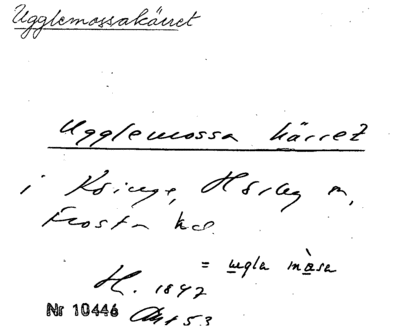 Ugglemossakärret
Ugglemossa kärret
i Köinge, Hörby sn,
Frosta hd.
= ugla måsa
H. 1847
Nr 10446